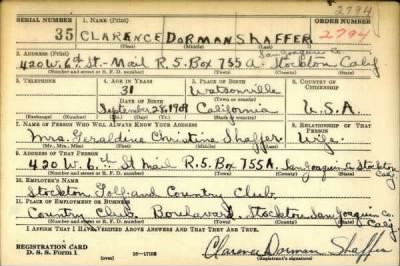 2794
SERIAL NUMBER 1. NAME (Print) ORDER NUMBER
35 CLARENCE DORMAN SHAFFER 2794
(First) (Middle) (Last)
San Joaquin Co.
2. ADDRESS (Print)
420 W. 6th St - Mail R. 5. Box 755 A. Stockton Calif
(Number and street or R. F. D. number) (Town) (County) (State)
3. TELEPHONE 4. AGE IN YEARS 5. PLACE OF BIRTH 6. COUNTRY OF CITIZENSHIP
31 Watsonville
(Town or county)
DATE OF BIRTH
September 28, 1909 California U.S.A.
(Exchange) (Number) (Mo.) (Day) (Yr.) (State or country)
7. NAME OF PERSON WHO WILL ALWAYS KNOW YOUR ADDRESS 8. RELATIONSHIP OF THAT PERSON
Mrs. Geraldine Christine Shaffer Wife.
(Mr., Mrs., Miss) (First) (Middle) (Last)
9. ADDRESS OF THAT PERSON
420 W. 6th St Mail R. 5. Box 755A. San Joaquin Co Stockton Calif
(Number and street or R. F. D. number) (Town) (County) (State)
10. EMPLOYER'S NAME
Stockton Golf and Country Club.
11. PLACE OF EMPLOYMENT OR BUSINESS
Country Club Boulavard. Stockton San Joaquin Co. Calif
(Number and street or R. F. D. number) (Town) (County) (State)
I AFFIRM THAT I HAVE VERIFIED ABOVE ANSWERS AND THAT THEY ARE TRUE.
REGISTRATION CARD
D. S. S. Form 1 (over) 16-17105 Clarence Dorman Shaffer